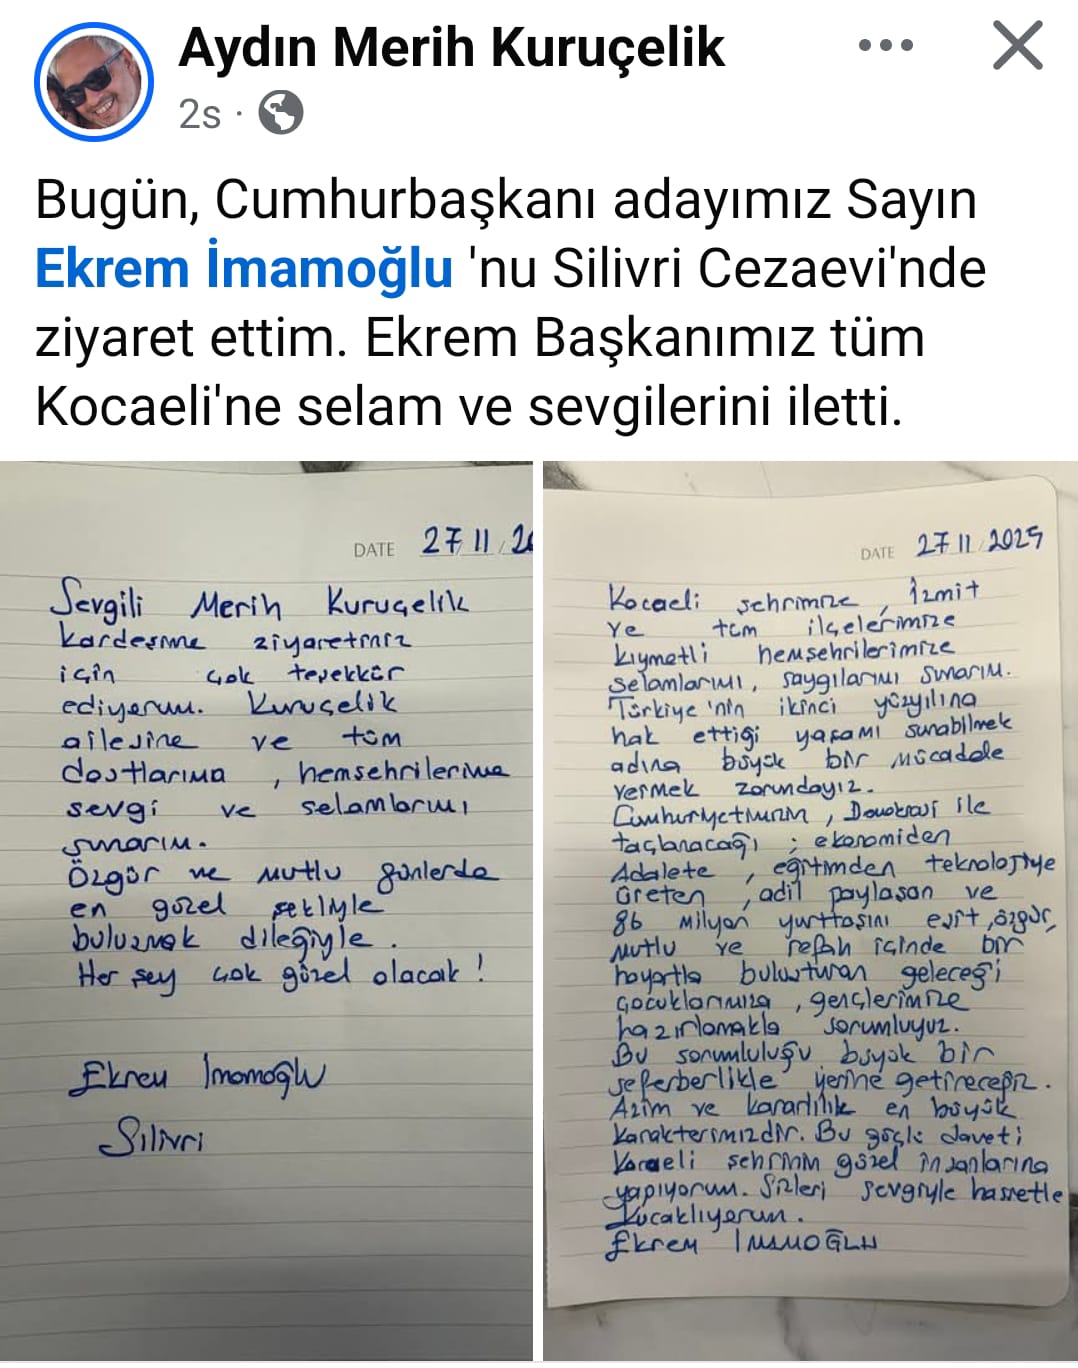 Aydın Merih Kuruçelik
2s ·
Bugün, Cumhurbaşkanı adayımız Sayın
Ekrem İmamoğlu 'nu Silivri Cezaevi'nde
ziyaret ettim. Ekrem Başkanımız tüm
Kocaeli'ne selam ve sevgilerini iletti.
DATE 27 11 20
Sevgili Merih Kuruçelik
kardeşime ziyaretiniz
için çok teşekkür
ediyorum. Kuruçelik
ailesine ve tüm
dostlarıma, hemşehrilerime
sevgi ve selamlarımı
sunarım.
Özgür ve mutlu günlerde
en güzel şekliyle
buluşmak dileğiyle.
Her şey çok güzel olacak!
Ekrem İmamoğlu
Silivri
DATE 27 11 2025
Kocaeli şehrimize, İzmit
ve tüm ilçelerimize
kıymetli hemşehrilerimize
selamlarımı, saygılarımı sunarım.
Türkiye'nin ikinci yüzyılına
hak ettiği yaşamı sunabilmek
adına büyük bir mücadele
vermek zorundayız.
Cumhuriyetimizin, Demokrasi ile
taçlanacağı; ekonomiden
Adalete, eğitimden teknolojiye
üreten, adil paylaşan ve
86 milyon yurttaşını eşit, özgür,
mutlu ve refah içinde bir
hayatla buluşturan geleceği
çocuklarımıza, gençlerimize
hazırlamakla sorumluyuz.
Bu sorumluluğu büyük bir
seferberlikle yerine getireceğiz.
Azim ve kararlılık en büyük
karakterimizdir. Bu güçlü daveti
Kocaeli şehrinin güzel insanlarına
yapıyorum. Sizleri sevgiyle hasretle
kucaklıyorum.
Ekrem İMAMOĞLU